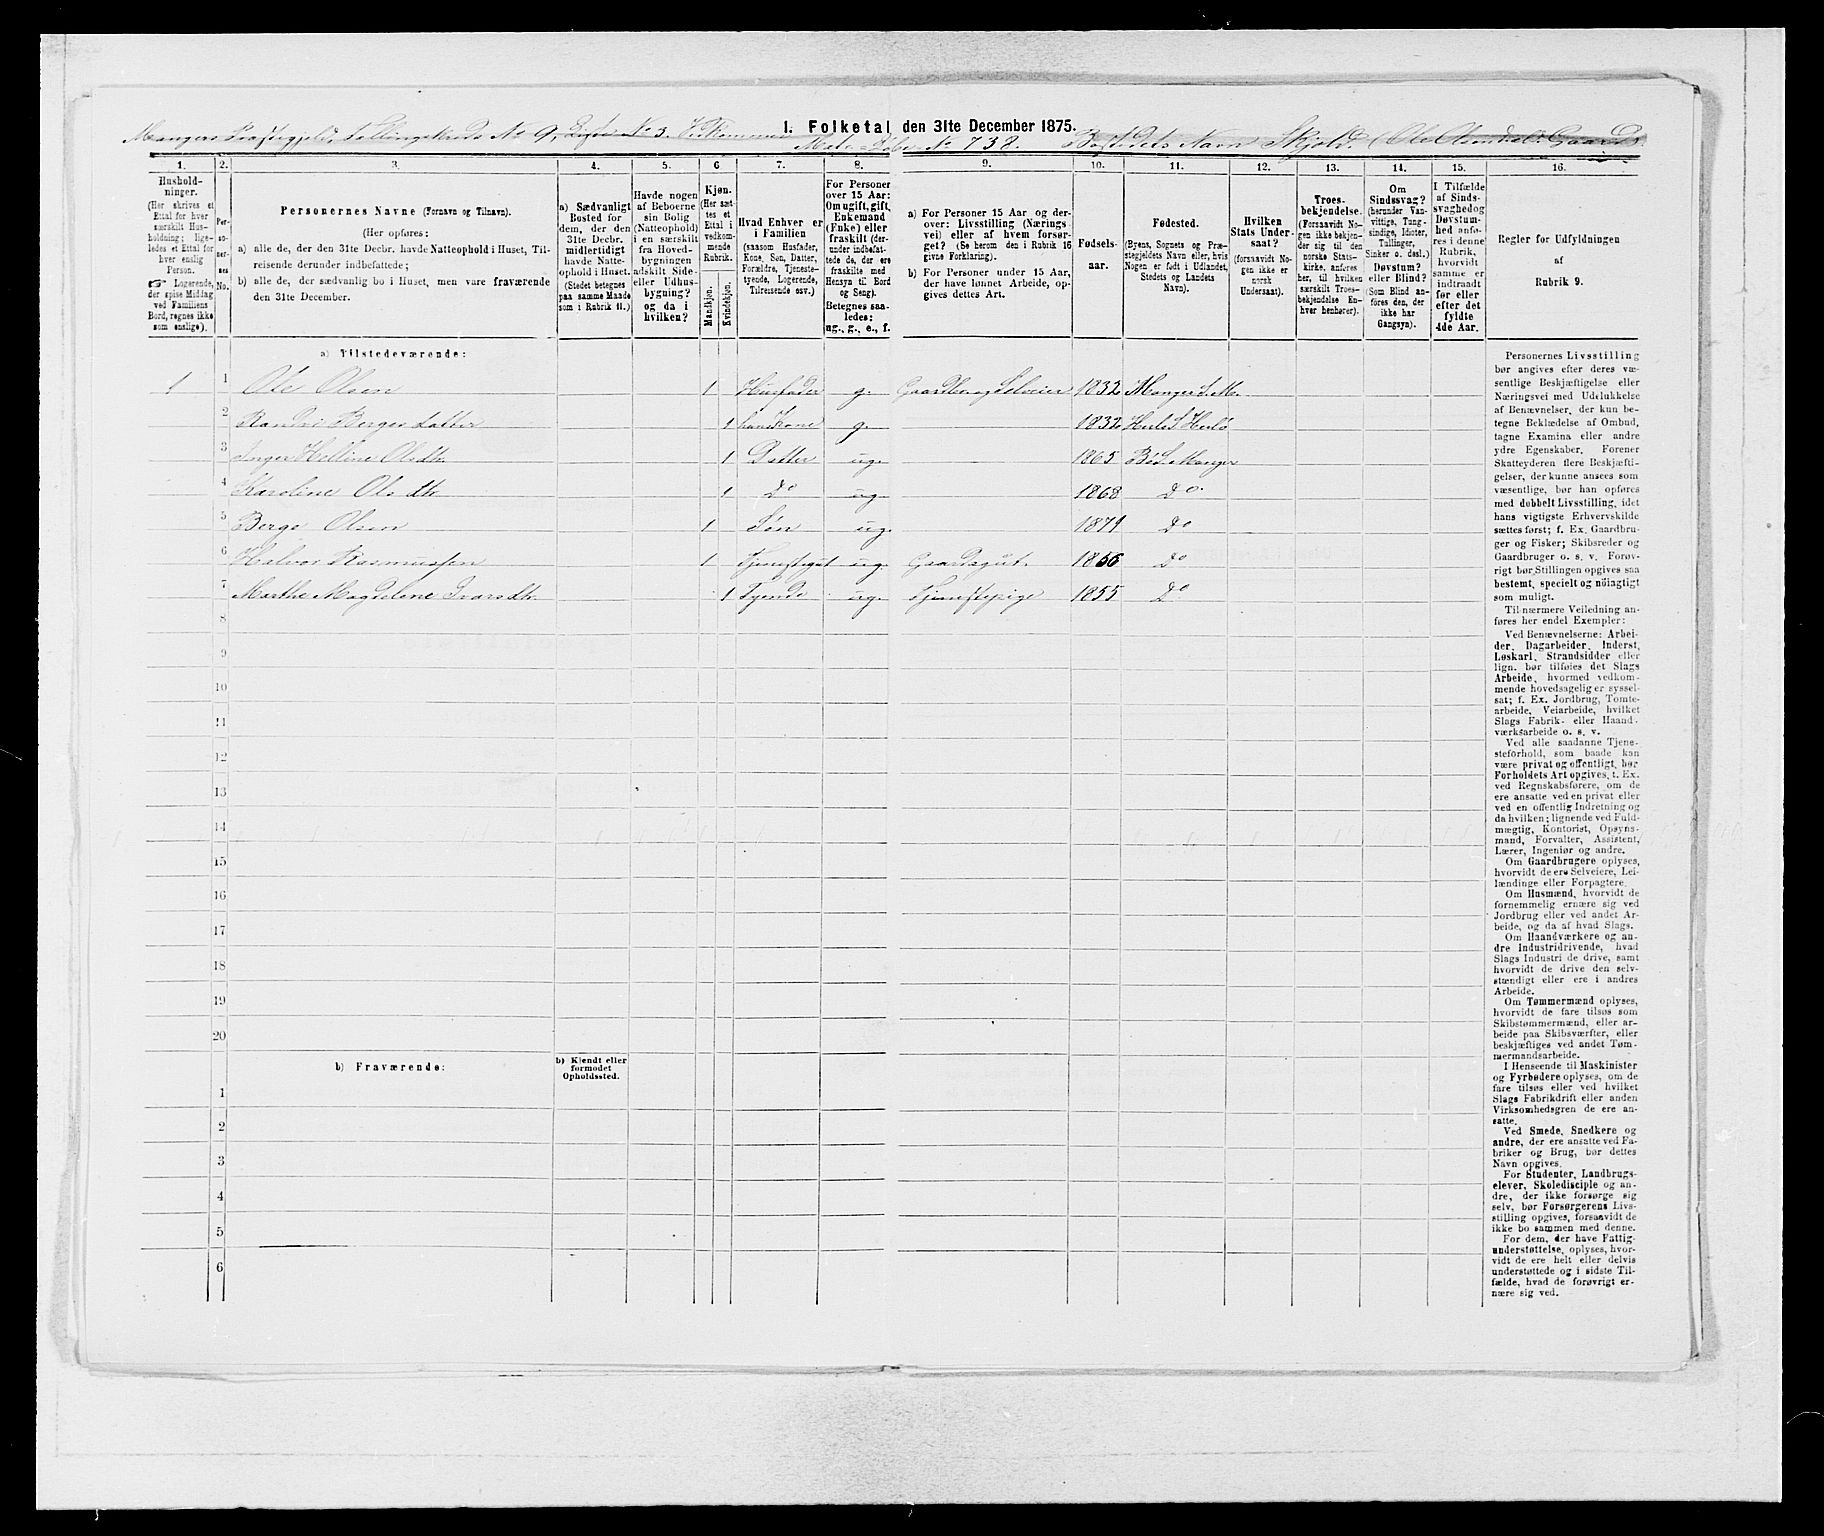 I. Folketal den 31te December 1875.
Mangers Præstegjeld, Tællingskreds No 9, Liste No 3.
No 738. Bostedets Navn Skjold.
1. 2. 3. 4. 5. 6 7. 8. 9. 10. 11. 12. 13. 14. 15. 16.
Hushold-
ninger.
(Her skrives et
Ettal for hver
særskilt Hus-
holdning; lige-
ledes et Ettal for
hver enslig
Person.
☞ Logerende,
der spise Middag
ved Familiens
Bord, regnes ikke
som enslige).
Per-
so-
ner-
nes
No.
Personernes Navne (Fornavn og Tilnavn).
(Her opføres:
a) alle de, der den 31te Decbr. havde Natteophold i Huset, Til-
reisende derunder indbefattede;
b) alle de, der sædvanlig bo i Huset, men vare fraværende
den 31te December.
a) Sædvanligt
Bosted for
dem, der den
31te Decbr.
midlertidigt
havde Natte-
ophold i Huset.
(Stedet betegnes
paa samme Maade
som i Rubrik 11.)
Havde nogen
af Beboerne
sin Bolig
(Natteophold)
i en særskilt
fra Hoved-
bygningen
adskilt Side-
eller Udhus-
bygning?
og da i
hvilken?
Kjøn.
(Her sæt-
tes et
Ettal i
vedkom-
mende
Rubrik.
Mandkjøn.
Kvindekjøn.
Hvad Enhver er
i Familien
(saasom Husfader,
Kone, Søn, Datter,
Forældre, Tjeneste-
tyende, Logerende,
Tilreisende osv.)
For Personer
over 15 Aar:
Om ugift, gift,
Enkemand
(Enke) eller
fraskilt (der-
under indbefat-
tede de, der ere
fraskilte med
Hensyn til Bord
og Seng).
Betegnes saa-
ledes:
ug., g., e., f.
a) For Personer 15 Aar og der-
over: Livsstilling (Nærings-
vei) eller af hvem forsør-
get? (Se herom den i Rubrik 16
givne Forklaring).
b) For Personer under 15 Aar,
der have lønnet Arbeide, op-
gives dettes Art.
Fødsels-
aar.
Fødested.
(Byens, Sognets og Præ-
stegjeldets Navn eller, hvis
Nogen er født i Udlandet,
Stedets og Landets
Navn).
Hvilken
Stats Under-
saat?
(forsaavidt No-
gen ikke er
norsk
Undersaat).
Troes-
bekjendelse.
(Forsaavidt No-
gen ikke bekjen-
der sig til den
norske Stats-
kirke, anføres
her, til hvilken
særskilt Troes-
bekjendelse En-
hver henhører).
Om
Sindssvag?
(herunder Van-
vittige, Tung-
sindige, Idioter,
Tullinger,
Sinker o. desl.)
Døvstum?
eller Blind?
(Som Blind an-
føres den, der
ikke har
Gangsyn).
I Tilfælde
af Sinds-
svaghed og
Døvstum-
hed anfø-
res i denne
Rubrik,
hvorvidt
samme er
indtraadt
før eller
efter det
fyldte
4de Aar.
Regler for Udfyldningen
af
Rubrik 9.
a) Tilstedeværende:
1 1 Ole Olsen 1 Husfader g. Gaardbr. og Selveier 1832 Manger S. M.
2 Randvi Berger datter 1 hans Kone g. 1832 Herlø S Herlø
3 Inger Helline Olsdtr. 1 Datter ug. 1865 Bø S. Manger
4 Karoline Olsdtr. 1 Do ug. 1868 Do.
5 Berge Olsen 1 Søn ug. 1871 Do
6 Halvor Rasmussen 1 Tjenestegut ug. Gaardsgut. 1856 Do
7 Marthe Magdelene Ivarsdtr. 1 Tyende ug. Tjenestepige 1855 Do
8
9
10
11
12
13
14
15
16
17
18
19
20
b) Fraværende:
b) Kjendt eller
formodet
Opholdssted.
1
2
3
4
5
6
Personernes Livsstilling
bør angives efter deres væ-
sentlige Beskjæftigelse eller
Næringsvei med Udelukkelse
af Benævnelser, der kun be-
tegne Beklædelse af Ombud,
tagne Examina eller andre
ydre Egenskaber. Forener
Skatteyderen flere Beskjæfti-
gelser, der kunne ansees som
væsentlige, bør han opføres
med dobbelt Livsstilling, idet
hans vigtigste Erhvervskilde
sættes først; f. Ex. Gaardbru-
ger og Fisker; Skibsreder og
Gaardbruger o. s. v. Forøv-
rigt bør Stillingen opgives saa
bestemt, specielt og nøiagtigt
som muligt.
Til nærmere Veiledning an-
føres her endel Exempler:
Ved Benævnelserne: Arbei-
der, Dagarbeider, Inderst,
Løskarl, Strandsidder eller
lign. bør tilføies det Slags
Arbeide, hvormed vedkom-
mende hovedsagelig er syssel-
sat; f. Ex. Jordbrug, Tomte-
arbeide, Veiarbeide, hvilket
Slags Fabrik- eller Haand-
værksarbeide o. s. v.
Ved alle saadanne Tjene-
steforhold, som baade kan
være privat og offentligt, bør
Forholdets Art opgives, t. Ex.
ved Regnskabsførere, om de
ere ansatte ved en privat eller
ved en offentlig Indretning og
da hvilken; lignende ved Fuld-
mægtig, Kontorist, Opsyns-
mand, Forvalter, Assistent,
Lærer, Ingeniør og andre.
Om Gaardbrugere oplyses,
hvorvidt de ere Selveiere, Lei-
lændinge eller Forpagtere.
Om Husmænd, hvorvidt de
fornemmelig ernære sig ved
Jordbrug eller ved andet Ar-
beide, og da af hvad Slags.
Om Haandværkere og an-
dre Industridrivende, hvad
Slags Industri de drive, samt
hvorvidt de drive den selv-
stændigt eller ere i andres
Arbeide.
Om Tømmermænd oplyses,
hvorvidt de fare tilsøs som
Skibstømmermænd, eller ar-
beide paa Skibsværfter, eller
beskjæftiges ved andet Tøm-
mermandsarbeide.
I Henseende til Maskinister
og Fyrbødere oplyses, om de
fare tilsøs eller ved hvilket
Slags Fabrikdrift eller anden
Virksomhedsgren de ere an-
satte.
Ved Smede, Snedkere og
andre, der ere ansatte ved Fa-
briker og Brug, bør dettes
Navn opgives.
For Studenter, Landbrugs-
elever, Skoledisciple og an-
dre, der ikke forsørge sig
selv, bør Forsørgerens Livs-
stilling opgives, forsaavidt de
ikke bo sammen med denne.
For dem, der have Fattig-
understøttelse, oplyses, hvor-
vidt de ere helt eller delvis
understøttede og i sidste Til-
fælde, hvad de forøvrigt er-
nære sig ved.